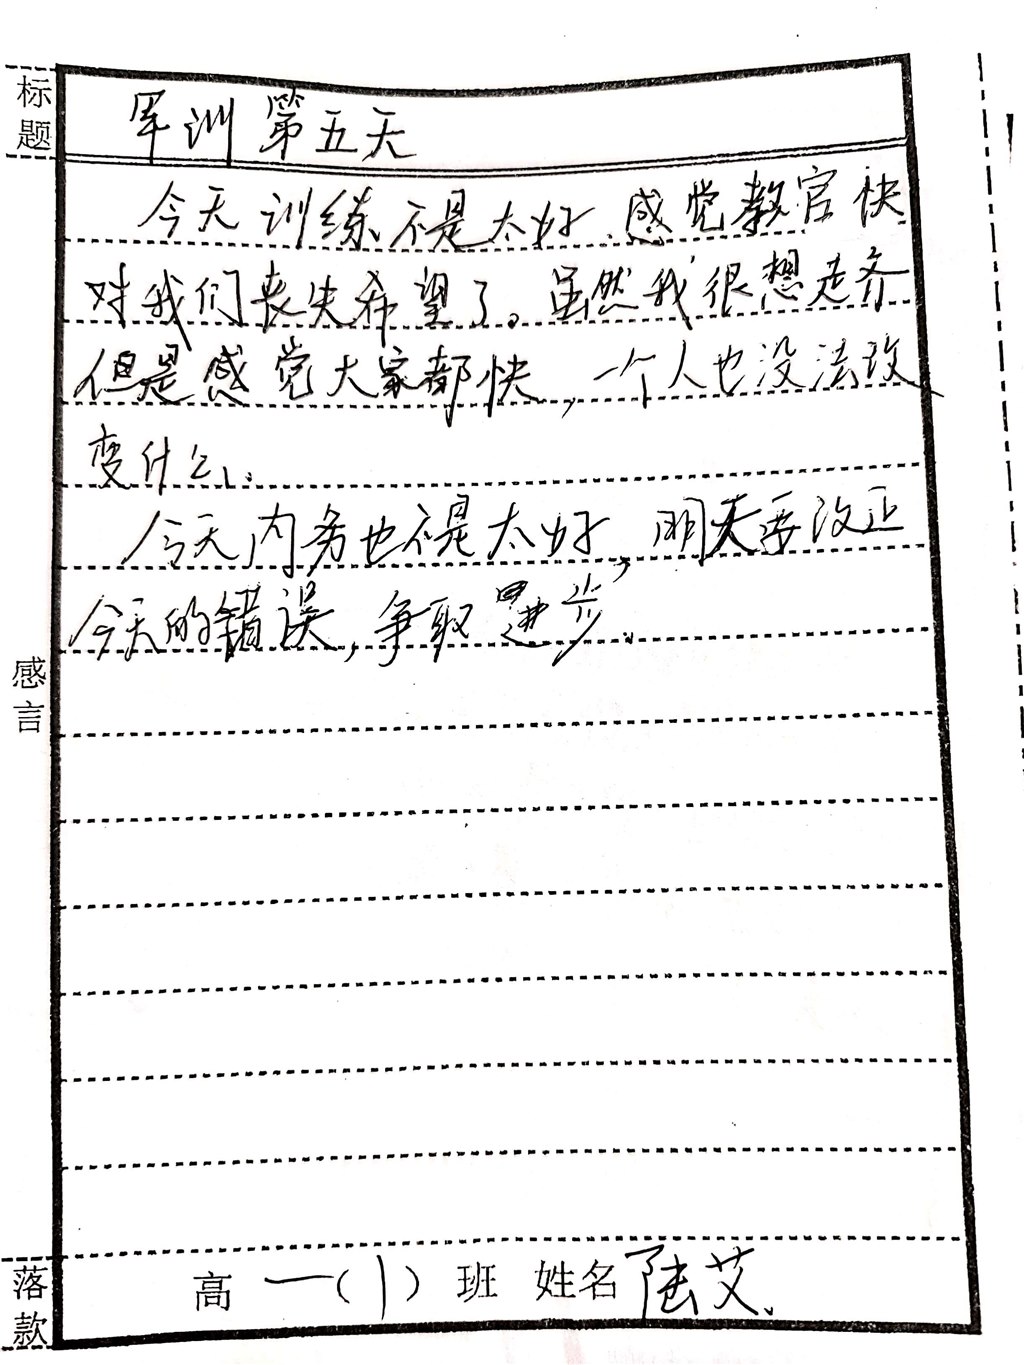 标题
军训第五天
今天训练不是太好、感觉教官快
对我们丧失希望了。虽然我很想走齐
但是感觉大家都快，一个人也没法改
变什么。
今天内务也不是太好，明天要改正
今天的错误，争取进步。
感言
落款
高一（1）班 姓名 陆艾